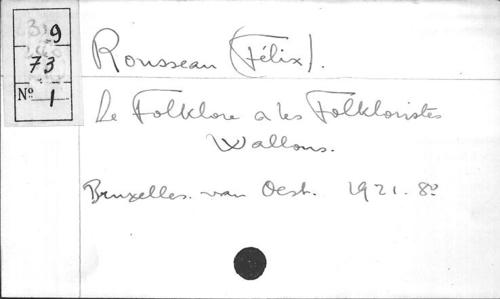 9
73
Nº 1
Rousseau (Félix).
Le Folklore & les Folkloristes
Wallons.
Bruxelles. van Oest. 1921. 8º